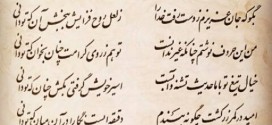 بگو که جان عزیزم ز دست رفت خدا را ز لعل روح فزایش ببخش آن که تو دانی
من این حروف نوشتم چنان که غیر ندانست تو هم ز روی کرامت چنان بخوان که تو دانی
خیال تیغ تو با ما حدیث تشنه و آبست اسیر خویش گرفتی بکش چنان که تو دانی
امید در کمر زرکشت چگونه ببندم دقیقه ایست نگارا در آن میان که تو دانی